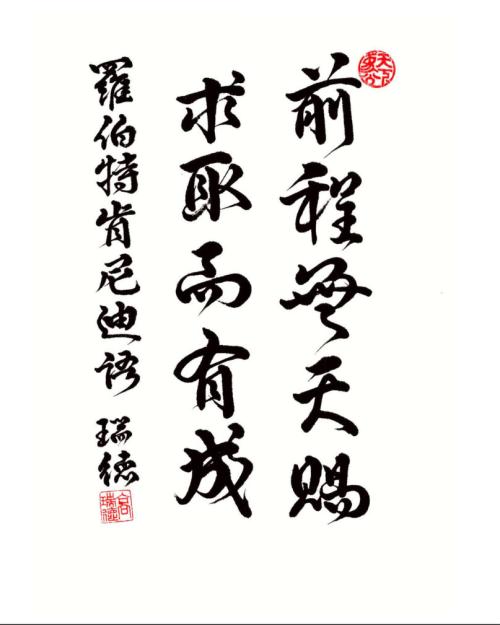 前程無天賜
求取而有成
羅伯特肯尼迪語 瑞德